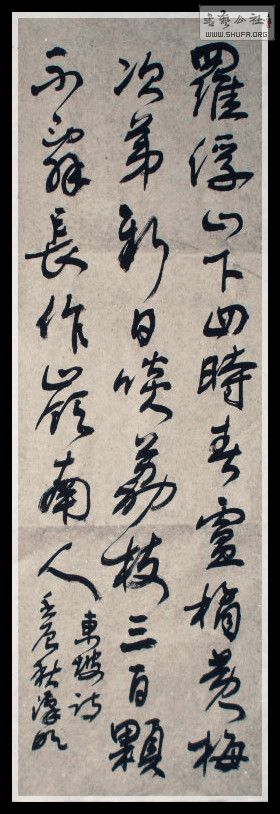 羅浮山下四時春盧橘黃梅
次第新日啖荔枝三百顆
不辭長作嶺南人
東坡詩
壬辰秋漢
書藝公社
WWW.SHUFA.ORG